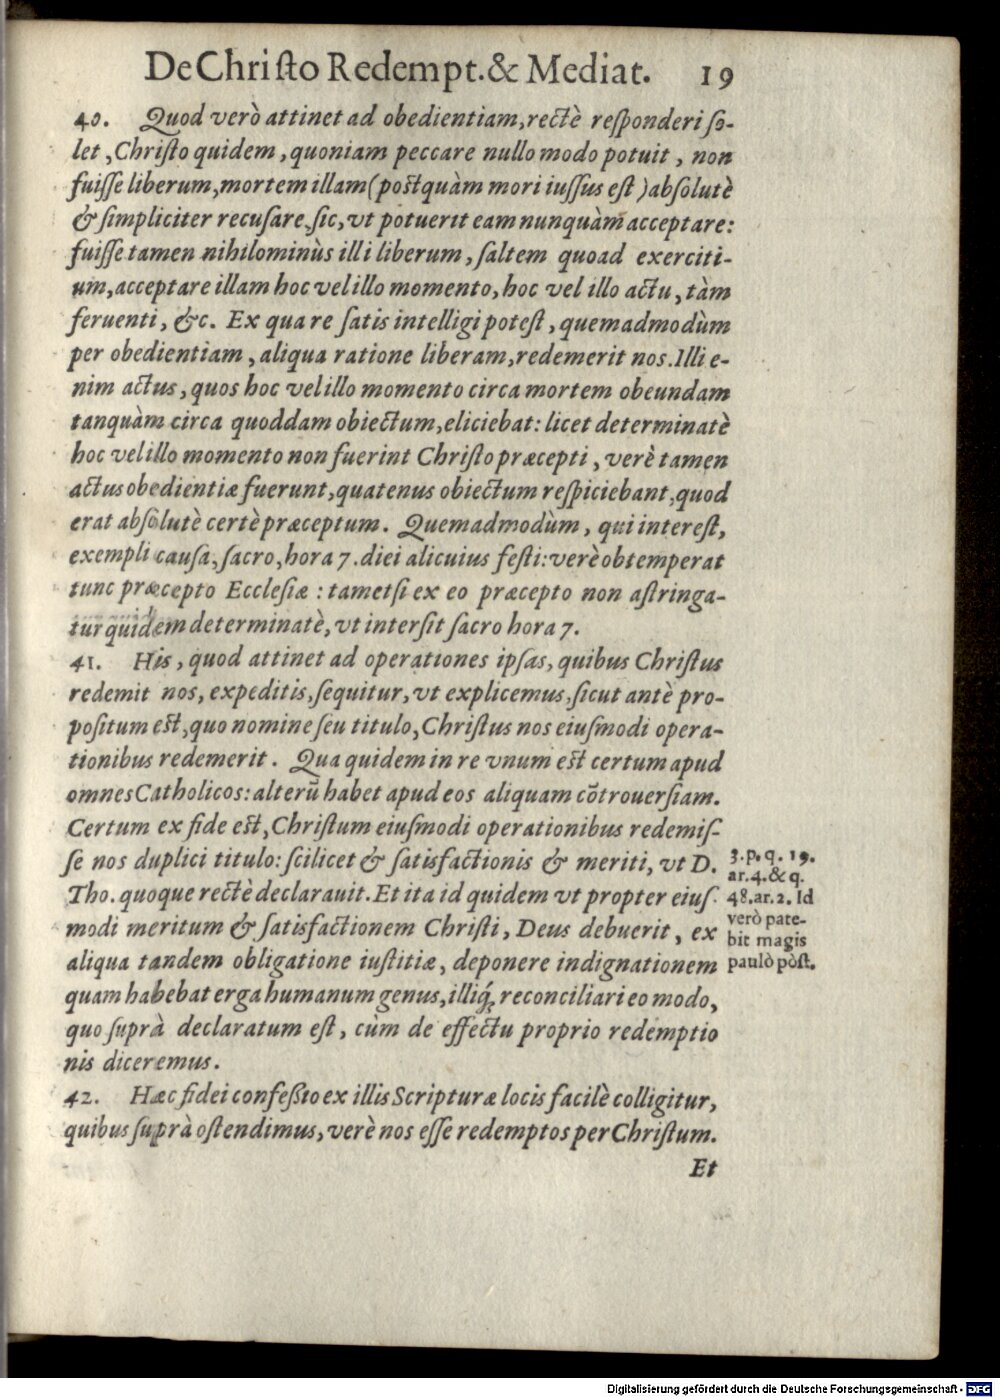 De Chriſto Redempt. & Mediat. 19
40. Quod verò attinet ad obedientiam, rectè reſponderi ſo-
let, Chriſto quidem, quoniam peccare nullo modo potuit, non
fuiſſe liberum, mortem illam (poſtquàm mori iuſſus eſt) abſolutè
& ſimpliciter recuſare, ſic, vt potuerit eam nunquàm acceptare:
fuiſſe tamen nihilominùs illi liberum, ſaltem quoad exerciti-
um, acceptare illam hoc vel illo momento, hoc vel illo actu, tàm
feruenti, &c. Ex qua re ſatis intelligi poteſt, quemadmodùm
per obedientiam, aliqua ratione liberam, redemerit nos. Illi e-
nim actus, quos hoc vel illo momento circa mortem obeundam
tanquàm circa quoddam obiectum, eliciebat: licet determinatè
hoc vel illo momento non fuerint Chriſto præcepti, verè tamen
actus obedientiæ fuerunt, quatenus obiectum reſpiciebant, quod
erat abſolutè certè præceptum. Quemadmodùm, qui intereſt,
exempli cauſa, ſacro, hora 7. diei alicuius feſti: verè obtemperat
tunc præcepto Eccleſiæ: tametſi ex eo præcepto non aſtringa-
tur quidem determinatè, vt interſit ſacro hora 7.
41. His, quod attinet ad operationes ipſas, quibus Chriſtus
redemit nos, expeditis, ſequitur, vt explicemus, ſicut antè pro-
poſitum eſt, quo nomine ſeu titulo, Chriſtus nos eiuſmodi opera-
tionibus redemerit. Qua quidem in re vnum eſt certum apud
omnes Catholicos: alterũ habet apud eos aliquam cõtrouerſiam.
Certum ex fide eſt, Chriſtum eiuſmodi operationibus redemiſ-
ſe nos duplici titulo: ſcilicet & ſatisfactionis & meriti, vt D.
Tho. quoque rectè declarauit. Et ita id quidem vt propter eiuſ-
modi meritum & ſatisfactionem Chriſti, Deus debuerit, ex
aliqua tandem obligatione iuſtitiæ, deponere indignationem
quam habebat erga humanum genus, illiq́; reconciliari eo modo,
quo ſuprà declaratum eſt, cùm de effectu proprio redemptio
nis diceremus.
3. p. q. 19.
ar. 4. & q.
48. ar. 2. Id
verò pate-
bit magis
paulò pòſt.
42. Hæc fidei confeßio ex illis Scripturæ locis facilè colligitur,
quibus ſuprà oſtendimus, verè nos eſſe redemptos per Chriſtum.
Et
Digitalisierung gefördert durch die Deutsche Forschungsgemeinschaft - DFG